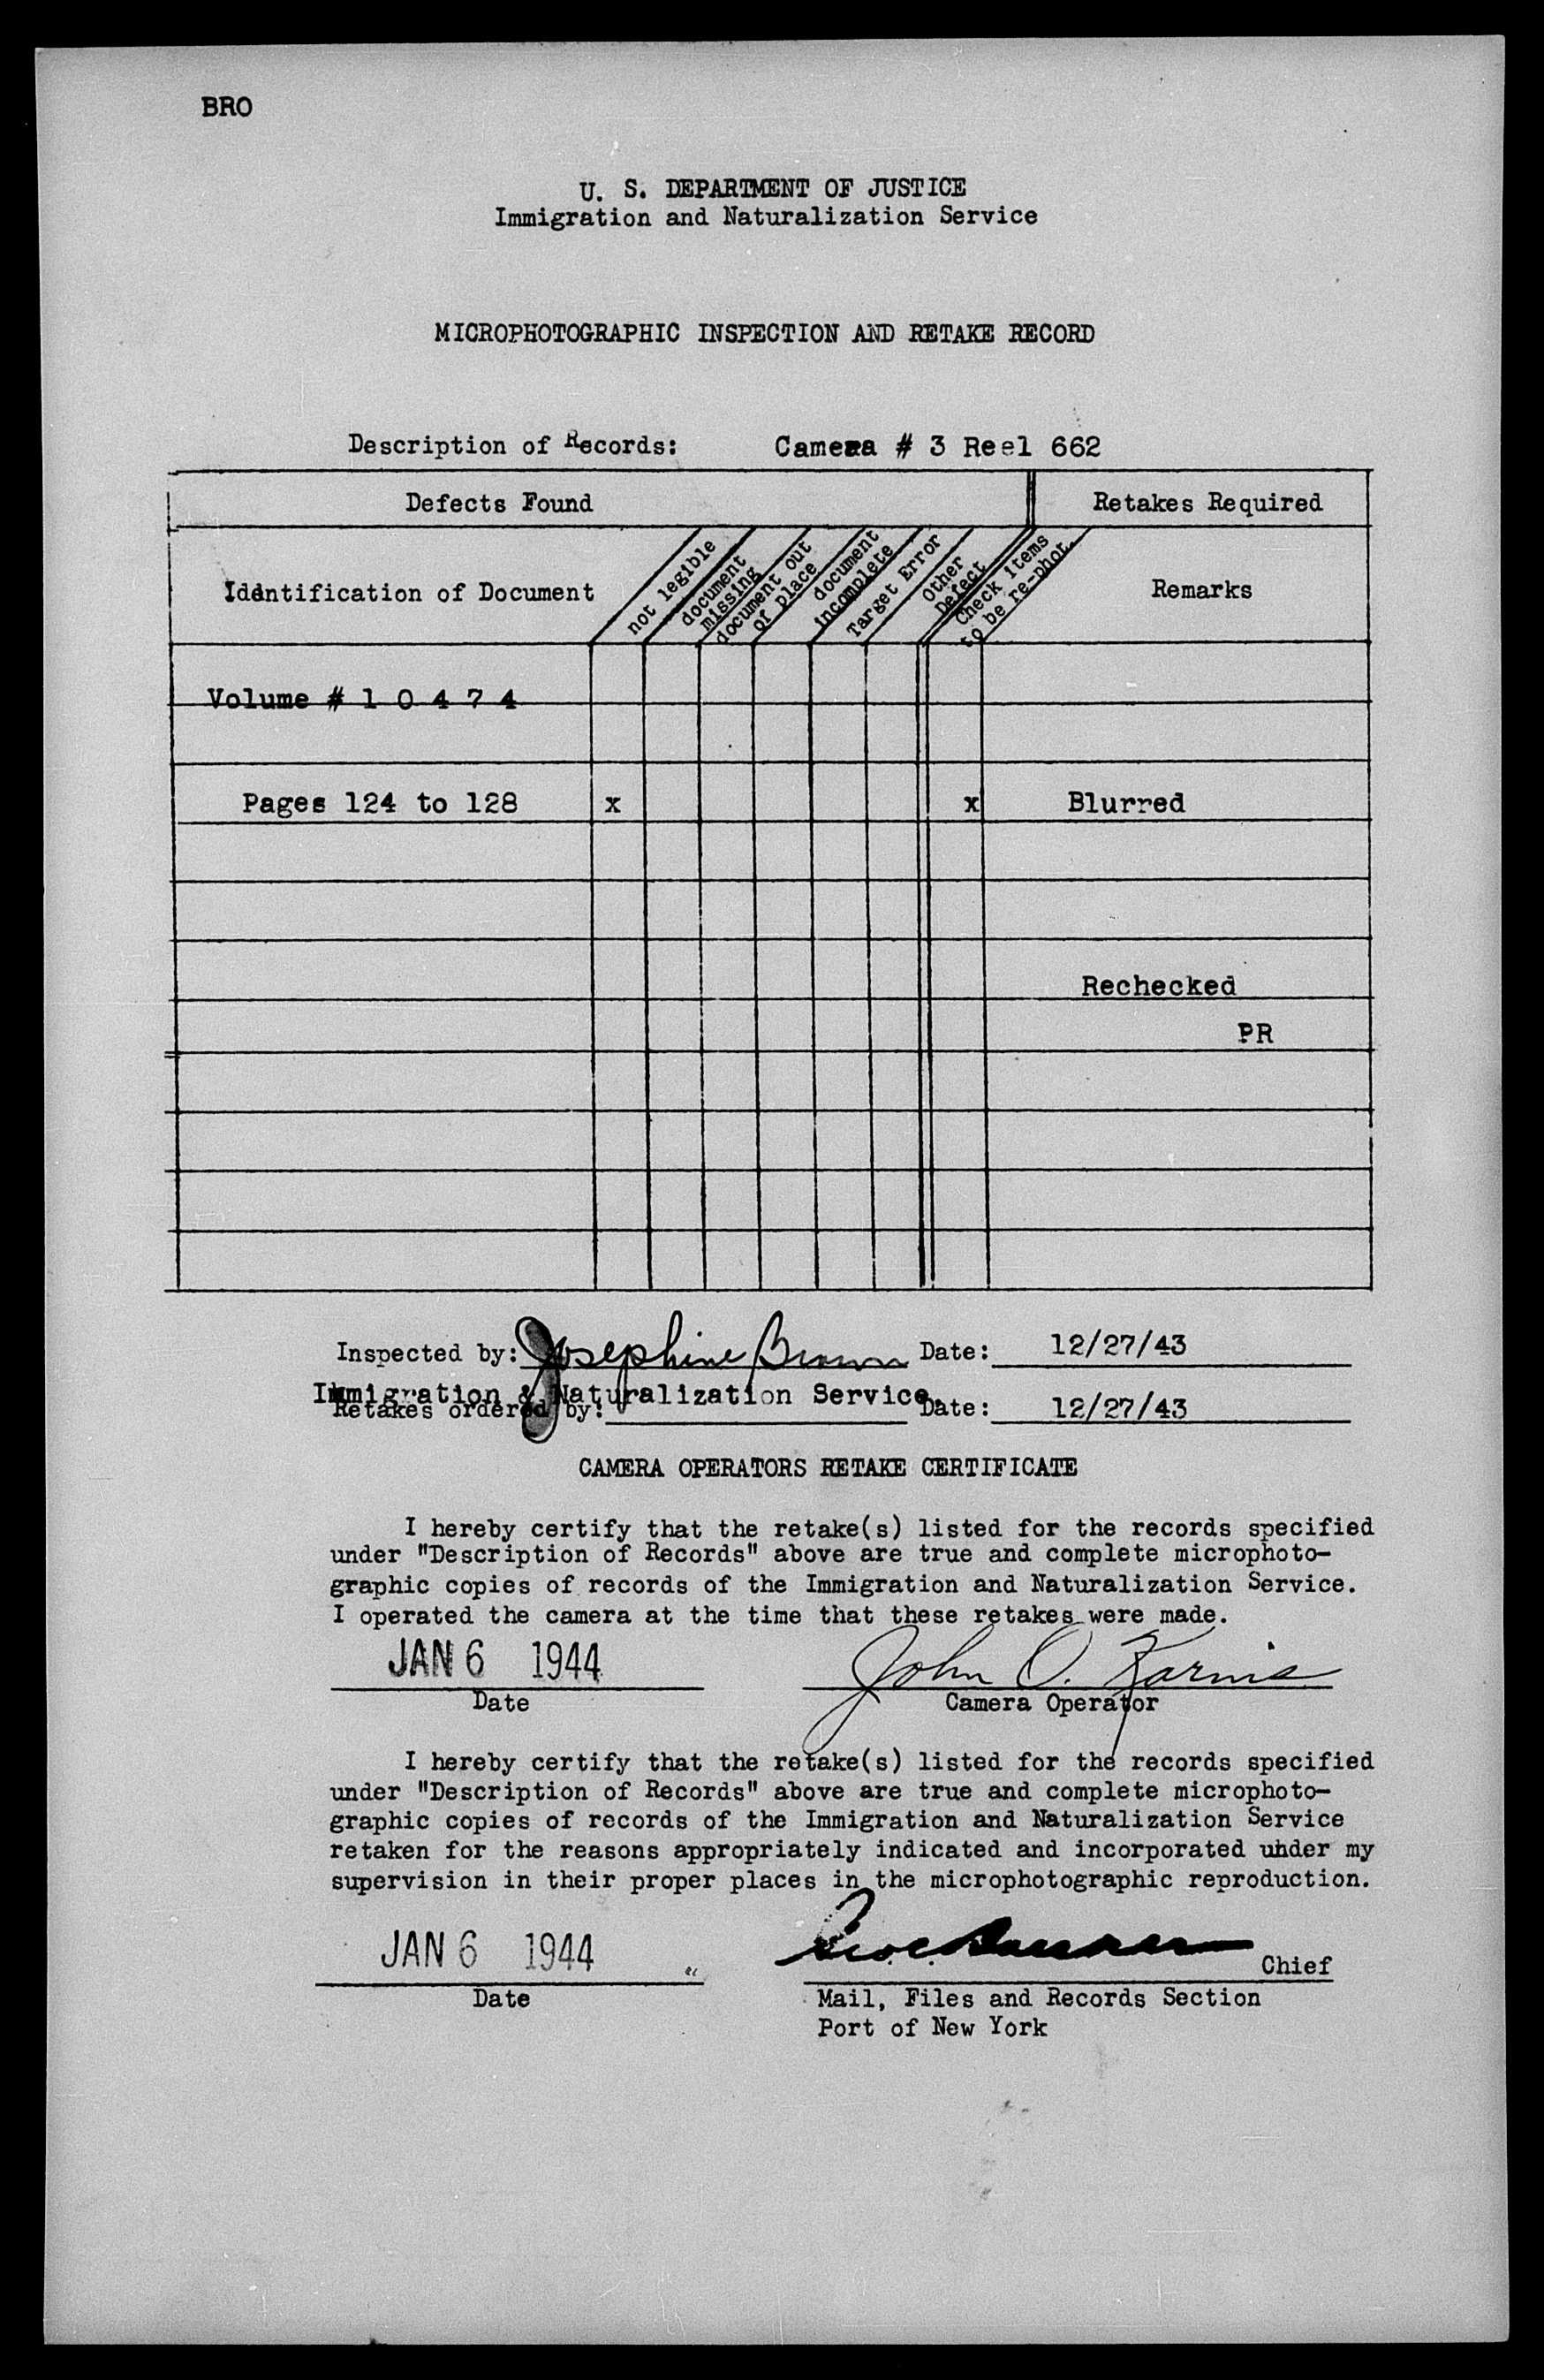 BRO
U. S. DEPARTMENT OF JUSTICE
Immigration and Naturalization Service
MICROPHOTOGRAPHIC INSPECTION AND RETAKE RECORD
Description of Records: Camera # 3 Reel 662
Defects Found Retakes Required
Identification of Document
not legible
document
missing
document out
of place
document
incomplete
Target Error
Other
Defect
Check items
to be re-phot.
Remarks
Volume # 1 0 4 7 4
Pages 124 to 128 x x Blurred
Rechecked
PR
Inspected by: Josephine Brown Date: 12/27/43
Immigration & Naturalization Service.
Retakes ordered by: Date: 12/27/43
CAMERA OPERATORS RETAKE CERTIFICATE
I hereby certify that the retake(s) listed for the records specified
under "Description of Records" above are true and complete microphoto-
graphic copies of records of the Immigration and Naturalization Service.
I operated the camera at the time that these retakes were made.
JAN 6 1944 John O. Karnis
Date Camera Operator
I hereby certify that the retake(s) listed for the records specified
under "Description of Records" above are true and complete microphoto-
graphic copies of records of the Immigration and Naturalization Service
retaken for the reasons appropriately indicated and incorporated under my
supervision in their proper places in the microphotographic reproduction.
JAN 6 1944 Chief
Date Mail, Files and Records Section
Port of New York